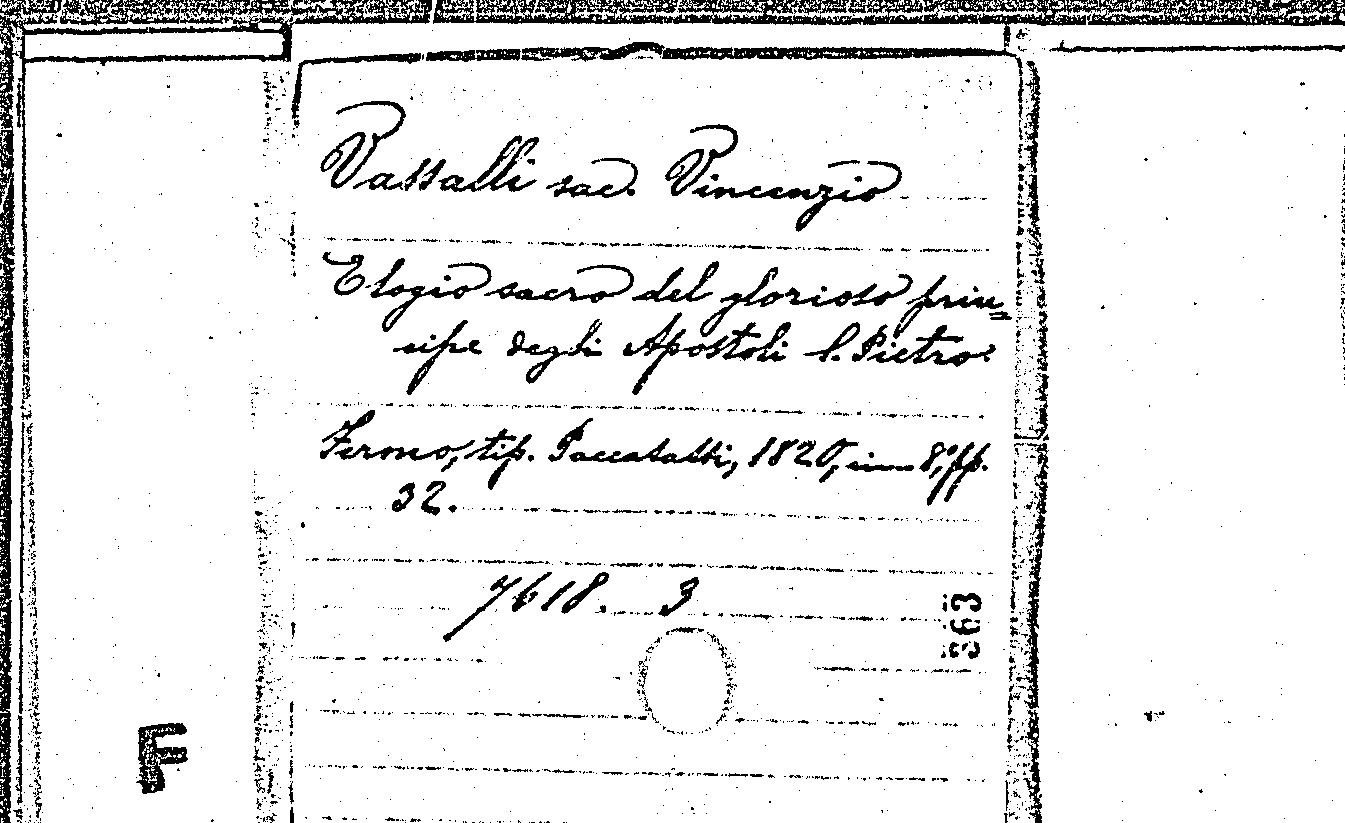 Vassalli sac. Vincenzio
Elogio sacro del glorioso prin=
cipe degli Apostoli S. Pietro.
Fermo, tip. Paccasassi, 1820, in 8°, pp.
32.
7618. 3
363
F